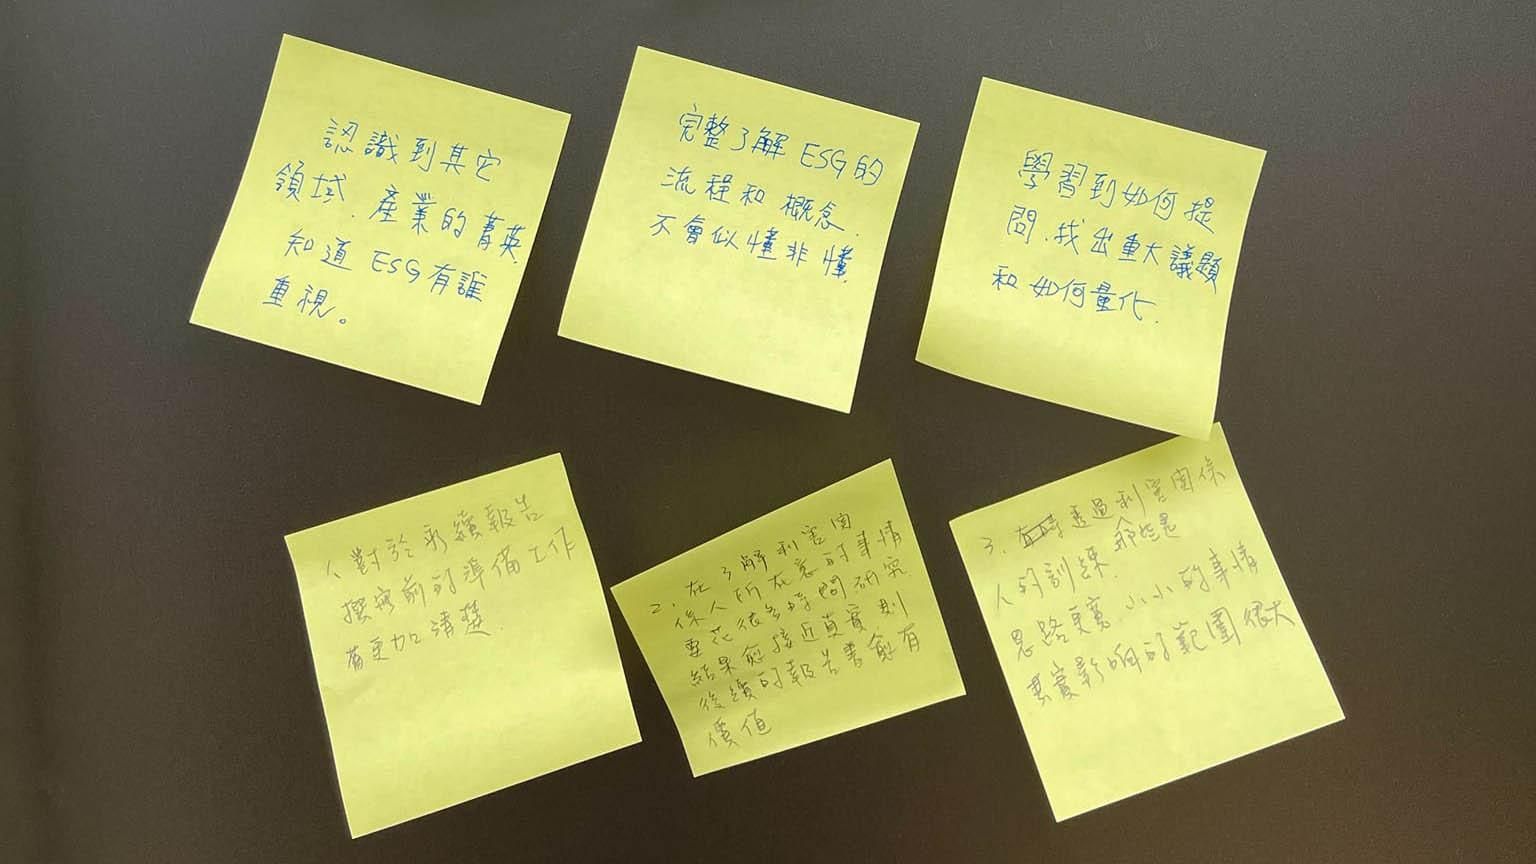 認識到其它
領域、產業的菁英
知道 ESG有誰
重視。
完整了解 ESG的
流程和概念.
不會似懂非懂.
學習到如何提
問、找出重大議題
和如何量化.
1、對於永續報告
撰寫前的準備工作
有更加清楚.
2、在了解利害関
係人所在意的事情
要花很多時間研究
結果愈接近真實則
後續的報告書愈有
價值
3、透過利害関係
人的訓練.
思路更寬.小小的事情
其實影响的範圍很大